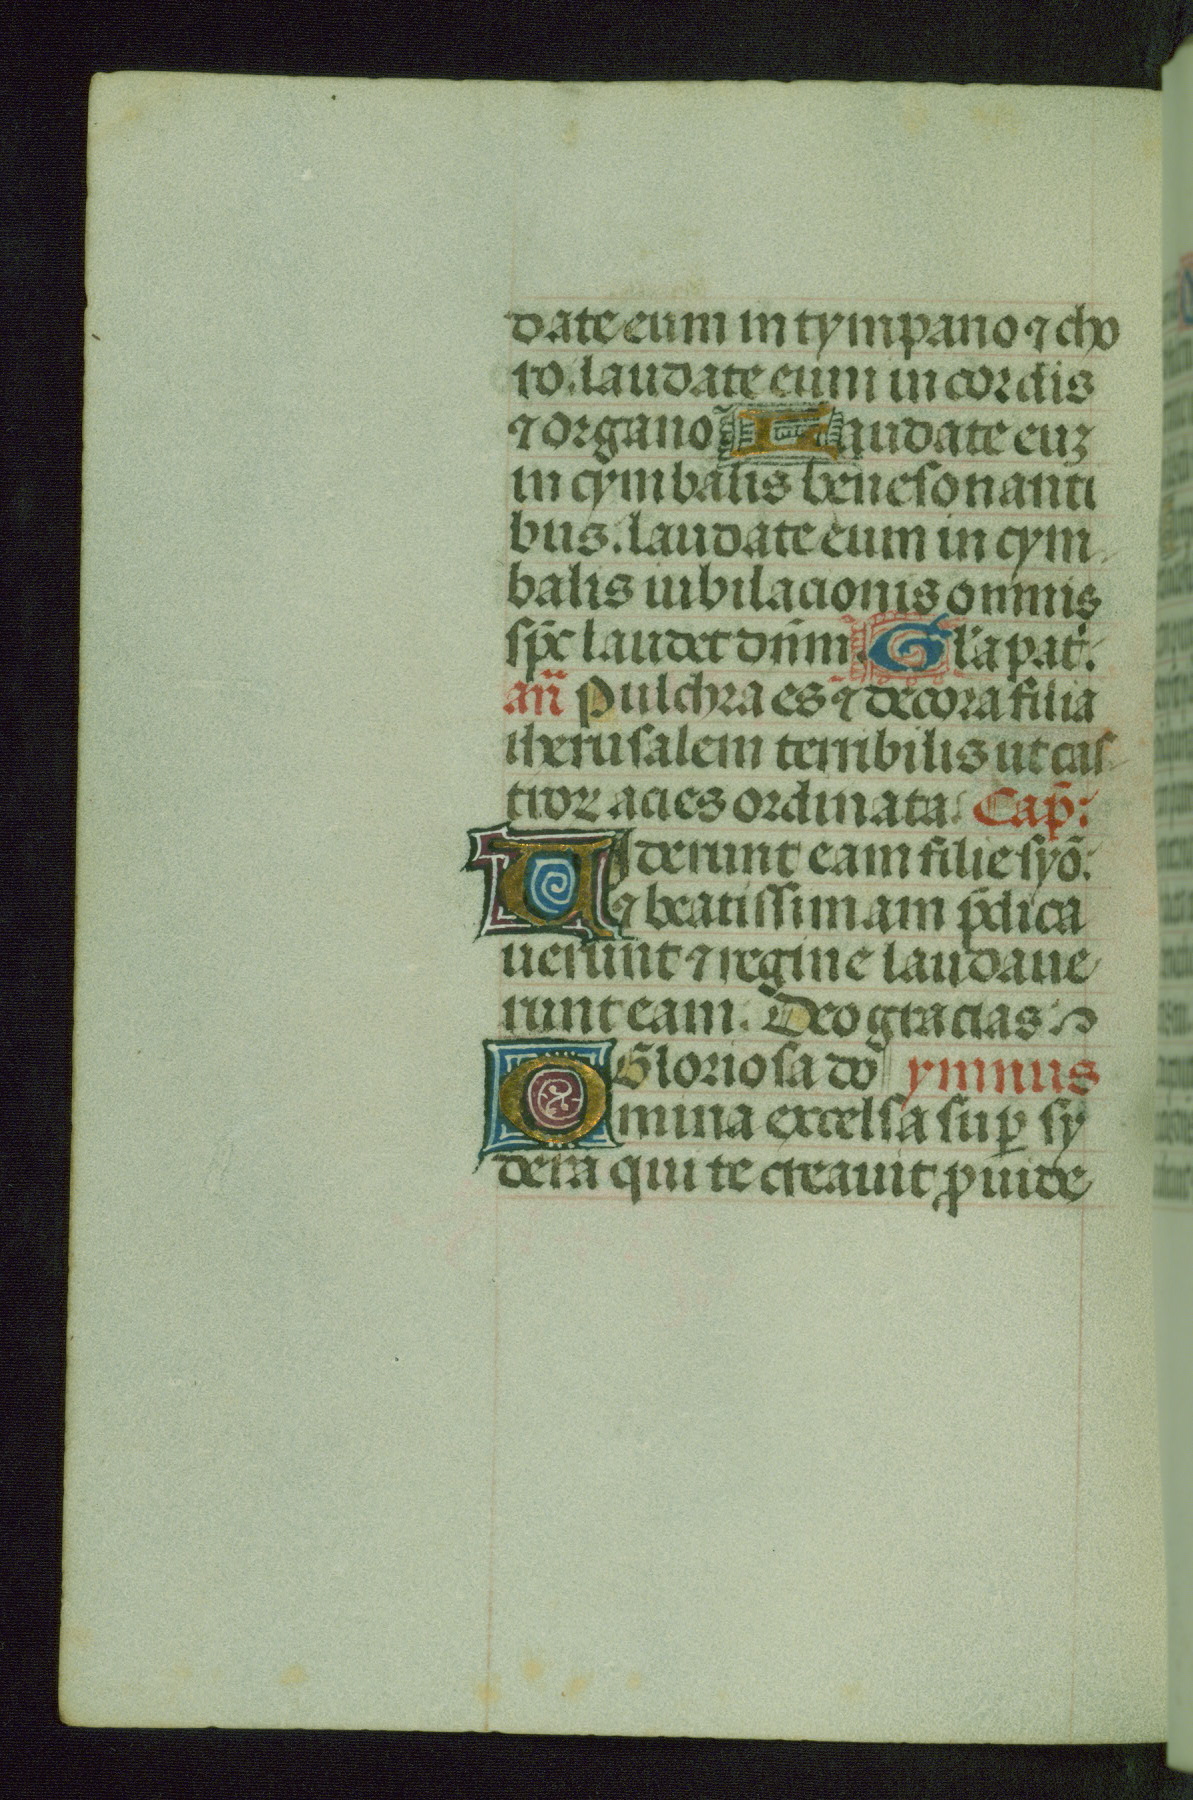 date eum in tympano ⁊ cho
ro. laudate eum in cordis
⁊ organo Laudate euꝫ
in cymbalis bene sonanti
bus. laudate eum in cym
balis iubilacionis omnis
sp̄c laudet dn̄m. Gl'a pat'.
an̄ Pulchra es ⁊ decora filia
iherusalem terribilis ut cas
troꝝ acies ordinata. Cap̄:
Uiderunt eam filie syō.
⁊ beatissimam p̄dica
uerunt ⁊ regine laudaue
runt eam. Deo gracias
O Gloriosa do ymnus
mina excelsa suꝑ sy
dera qui te creauit ꝓuide